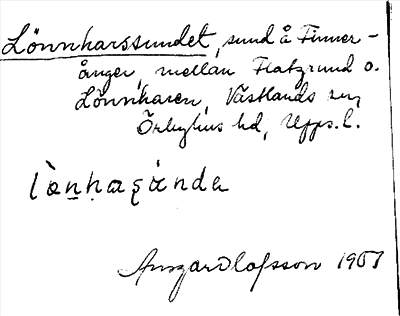 Lönnharssundet, sund å Finner-
ånger, mellan Flatgrund o.
Lönnharen, Västlands sn,
Örbyhus hd, Upps. l.
Ansgar Olofsson 1907